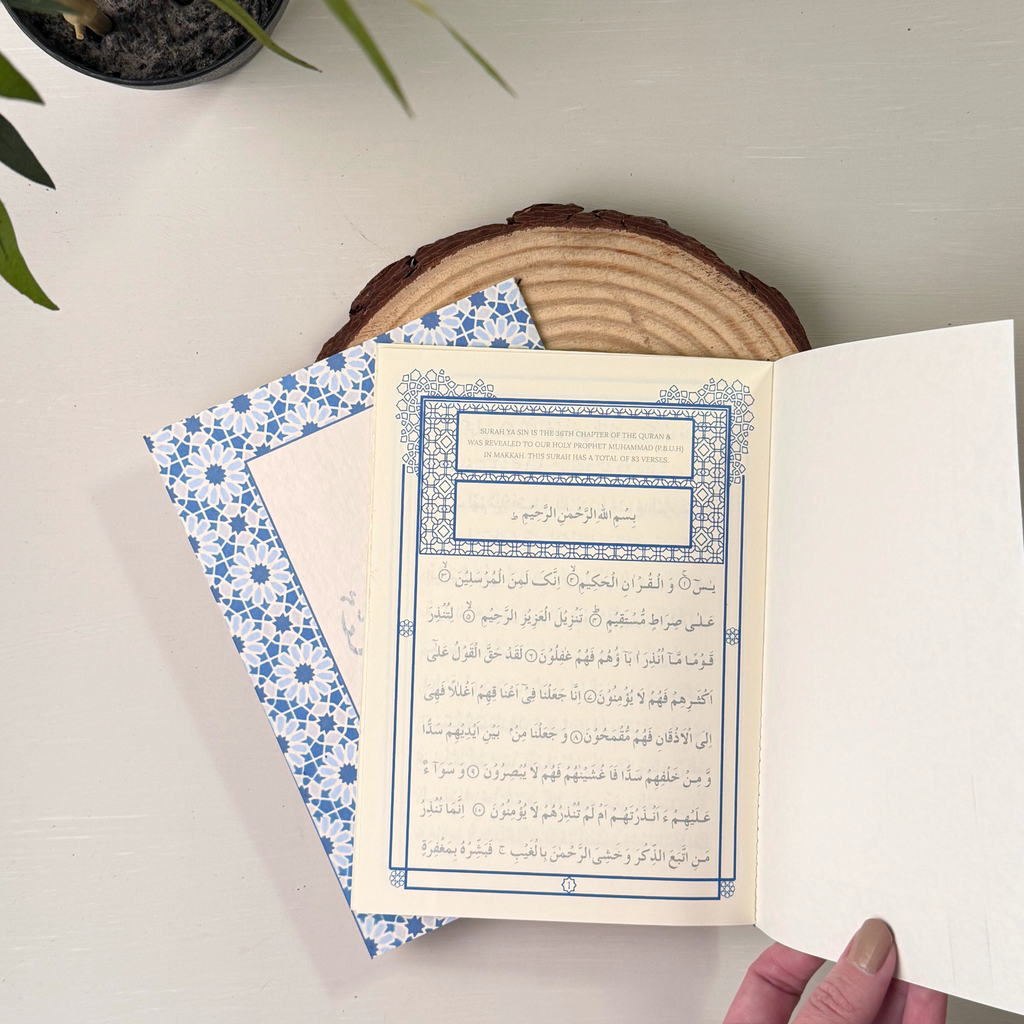 SURAH YA SIN IS THE 36TH CHAPTER OF THE QURAN &
WAS REVEALED TO OUR HOLY PROPHET MUHAMMAD (P.B.U.H)
IN MAKKAH. THIS SURAH HAS A TOTAL OF 83 VERSES.
بِسْمِ اللهِ الرَّحْمٰنِ الرَّحِيْمِ ط
يٰسٓ ۚ﴿۱﴾ وَ الْقُرْاٰنِ الْحَكِيْمِ ۙ﴿۲﴾ اِنَّکَ لَمِنَ الْمُرْسَلِيْنَ ۙ﴿۳﴾
عَلٰى صِرَاطٍ مُّسْتَقِيْمٍ ؕ﴿۴﴾ تَنْزِيْلَ الْعَزِيْزِ الرَّحِيْمِ ۙ﴿۵﴾ لِتُنْذِرَ
قَوْمًا مَّآ اُنْذِرَ اٰبَآؤُهُمْ فَهُمْ غٰفِلُوْنَ ﴿۶﴾ لَقَدْ حَقَّ الْقَوْلُ عَلٰٓى
اَكْثَرِهِمْ فَهُمْ لَا يُؤْمِنُوْنَ ﴿۷﴾ اِنَّا جَعَلْنَا فِىْٓ اَعْنَا قِهِمْ اَغْلٰلًا فَهِىَ
اِلَى الْاَذْقَانِ فَهُمْ مُّقْمَحُوْنَ ﴿۸﴾ وَ جَعَلْنَا مِنْۢ بَيْنِ اَيْدِيْهِمْ سَدًّا
وَّ مِنْ خَلْفِهِمْ سَدًّا فَاَ غْشَيْنٰهُمْ فَهُمْ لَا يُبْصِرُوْنَ ﴿۹﴾ وَ سَوَآ ءٌ
عَلَيْهِمْ ءَ اَنْذَرْتَهُمْ اَمْ لَمْ تُنْذِرْهُمْ لَا يُؤْمِنُوْنَ ﴿۱۰﴾ اِنَّمَا تُنْذِرُ
مَنِ اتَّبَعَ الذِّكْرَ وَ خَشِىَ الرَّحْمٰنَ بِالْغَيْبِ ۚ فَبَشِّرْهُ بِمَغْفِرَةٍ
1